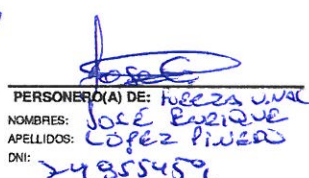 PERSONERO(A) DE: FUERZA
NOMBRES: JOSÉ ENRIQUE
APELLIDOS: LÓPEZ PINEDO
DNI: